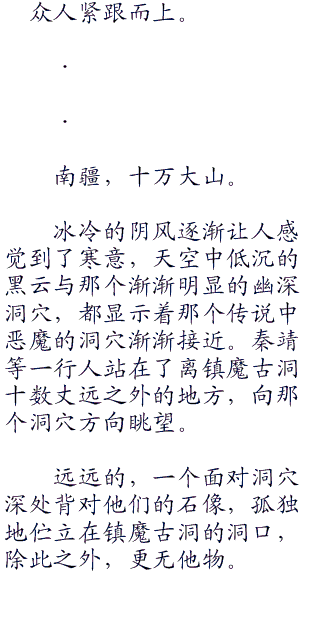 众人紧跟而上。
.
.
南疆，十万大山。
冰冷的阴风逐渐让人感
觉到了寒意，天空中低沉的
黑云与那个渐渐明显的幽深
洞穴，都显示着那个传说中
恶魔的洞穴渐渐接近。秦靖
等一行人站在了离镇魔古洞
十数丈远之外的地方，向那
个洞穴方向眺望。
远远的，一个面对洞穴
深处背对他们的石像，孤独
地伫立在镇魔古洞的洞口，
除此之外，更无他物。